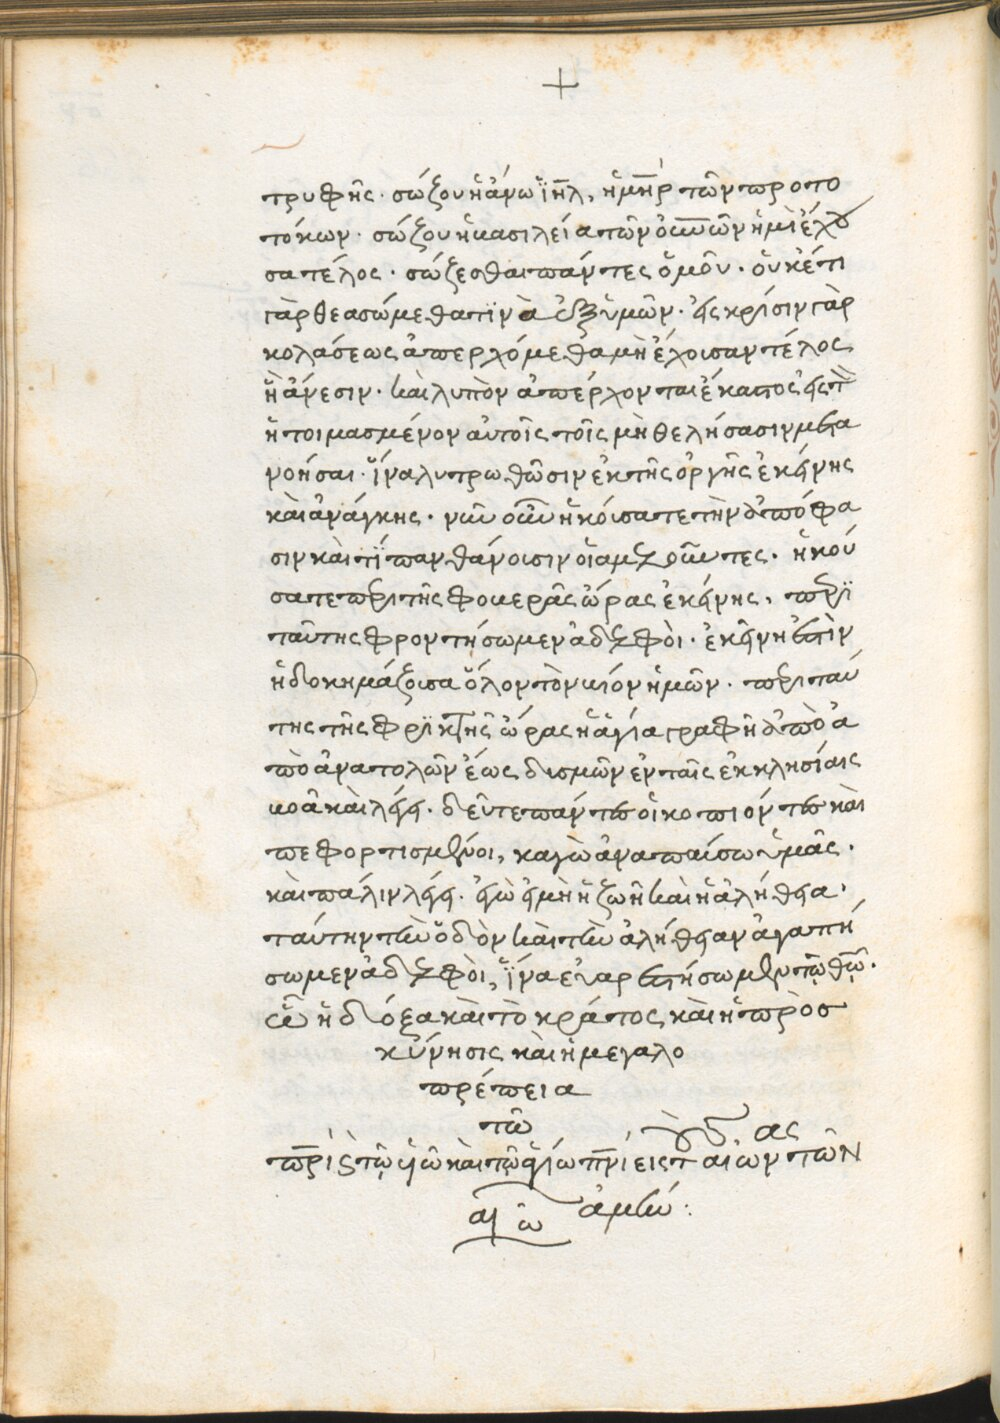 +
τρυφῆς· σώζου ἡ ἄνω ϊῆλ, ἡ μῆηρ τῶν προτο
τόκων· σώζου ἡ βασιλεία τῶν οὐνῶν ἡ μὶ ἔχου
σα τέλος· σώζεσθαι πάντες ὁμοῦ· οὐκέτι
γὰρ θεασώμεθα τϊνὰ ἐξ ὑμῶν· εἰς κρίσιν γὰρ
κολάσεως ἀπερχόμεθα μὴ ἔχοισαν τέλος
ἢ ἄνεσιν· καὶ λυπὸν ἀπέρχονται ἕκαστος εἰς τὸ
ἡτοιμασμένον αὐτοῖς τοῖς μὴ θελήσασιν μετα
νοῆσαι· ἵνα λυτρωθῶσιν ἐκ τῆς ὀργῆς ἐκείνης
καὶ ἀνάγκης· νῦν οὖν ἠκούσατε τὴν ἀπόφα
σιν καὶ τϊ πανθάνουσιν οἱ ἀμελοῦντες· ἠκού
σατε περὶ τῆς φοβερᾶς ὥρας ἐκείνης, περὶ
ταύτης φροντήσωμεν ἀδελφοὶ· ἐκείνη ἐστὶν
ἡ δοκημάζουσα ὅλον τὸν βίον ἡμῶν· περὶ ταύ
της τῆς φρϊκτῆς ὥρας ἡ ἁγία γραφὴ ἀπὸ ἀ
πὸ ἀνατολῶν ἕως δυσμῶν ἐν ταῖς ἐκκλησίαις
βοᾶ καὶ λέγει· δεῦτε πάντες οἱ κοπιόντες καὶ
πεφορτισμένοι, καγὼ ἀναπαύσω ὑμᾶς·
καὶ πάλιν λέγει· ἐγὼ εἰμὴ ἡ ζωὴ καὶ ἡ ἀλήθεια·
ταύτην τὴν ὁδὸν καὶ τὴν ἀλήθειαν ἀγαπή
σωμεν ἀδελφοὶ, ἵνα εὐαρεστήσωμεν τῷ θῷ·
ὧ ἡ δόξα καὶ τὸ κράτος καὶ ἡ πρὸσ
κύνησις καὶ ἡ μεγαλο
πρέπεια
τῶ
πρὶ καὶ τῷ υἱῶ καὶ τῷ ἁγίω πνὶ εις τ αἰώνας τῶν
αἰώ ἀμήν: